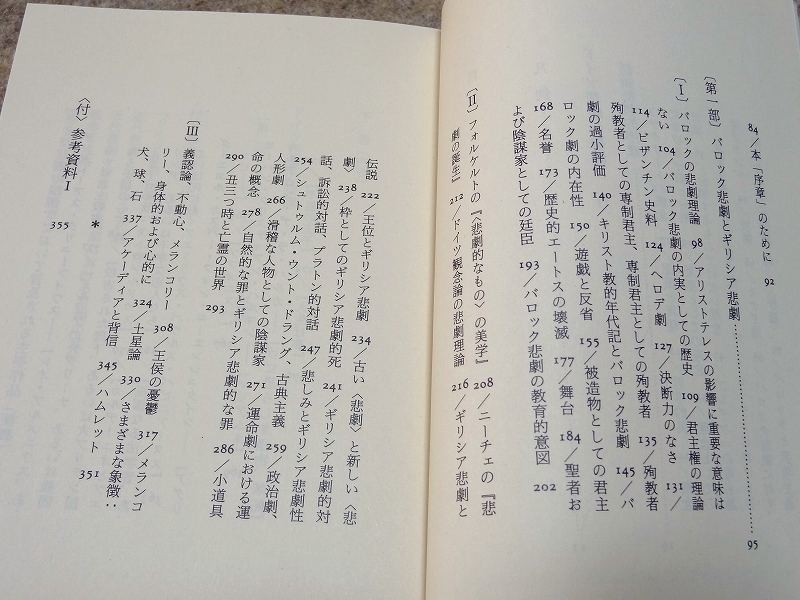 84／本「序章」のために 92
〔第一部〕 バロック悲劇とギリシア悲劇…………………… 95
〔Ⅰ〕 バロックの悲劇理論 98／アリストテレスの影響に重要な意味は
ない 104／バロック悲劇の内実としての歴史 109／君主権の理論
114／ビザンチン史料 124／ヘロデ劇 127／決断力のなさ 131／
殉教者としての専制君主、専制君主としての殉教者 135／殉教者
劇の過小評価 140／キリスト教的年代記とバロック悲劇 145／バ
ロック劇の内在性 150／遊戯と反省 155／被造物としての君主
168／名誉 173／歴史的エートスの壊滅 177／舞台 184／聖者お
よび陰謀家としての廷臣 193／バロック悲劇の教育的意図 202
〔Ⅱ〕 フォルケルトの『〈悲劇的なもの〉の美学』 208／ニーチェの『悲
劇の誕生』 212／ドイツ観念論の悲劇理論 216／ギリシア悲劇と
伝説 222／王位とギリシア悲劇 234／古い〈悲劇〉と新しい〈悲
劇〉 238／枠としてのギリシア悲劇的死 241／ギリシア悲劇的対
話、訴訟的対話、プラトン的対話 247／悲しみとギリシア悲劇性
254／シュトゥルム・ウント・ドラング、古典主義 259／政治劇、
人形劇 266／滑稽な人物としての陰謀家 271／運命劇における運
命の概念 278／自然的な罪とギリシア悲劇的な罪 286／小道具
290／丑三つ時と亡霊の世界 293
〔Ⅲ〕 義認論、不動心、メランコリー 308／王侯の憂鬱 317／メランコ
リー、身体的および心的に 324／土星論 330／さまざまな象徴：
犬、球、石 337／アケーディアと背信 345／ハムレット 351
＊
〈付〉 参考資料Ⅰ 355